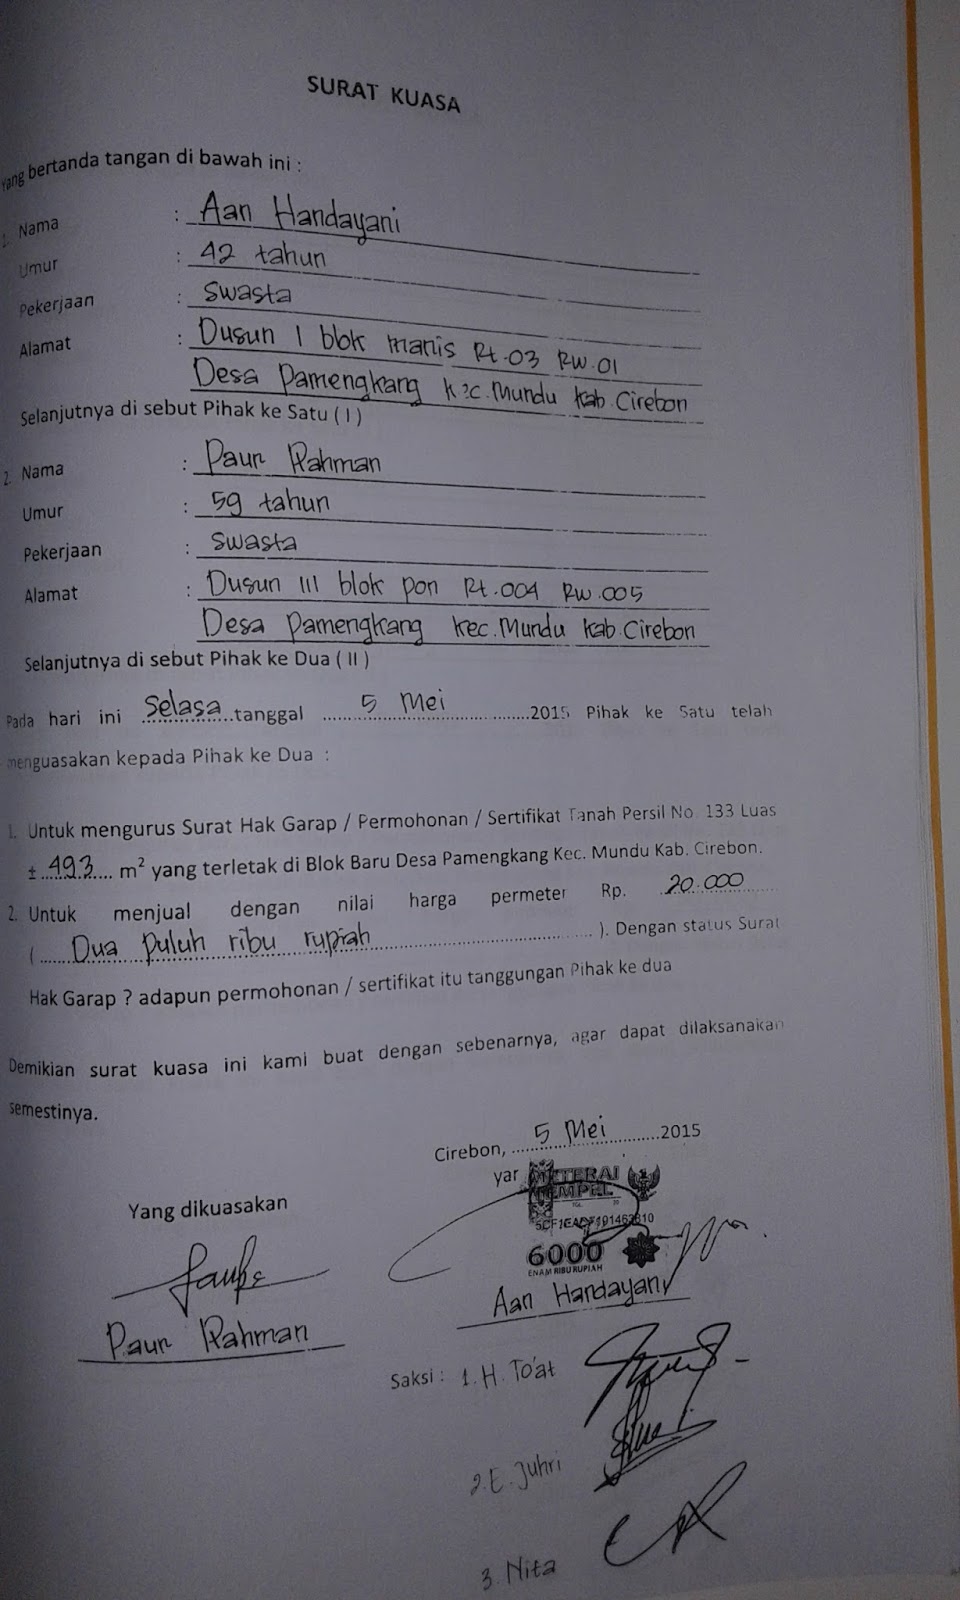 SURAT KUASA
Yang bertanda tangan di bawah ini :
1. Nama : Aan Handayani
Umur : 42 tahun
Pekerjaan : Swasta
Alamat : Dusun I blok manis Rt.03 RW.01
Desa Pamengkang Kec.Mundu Kab.Cirebon
Selanjutnya di sebut Pihak ke Satu ( I )
2. Nama : Paur Rahman
Umur : 59 tahun
Pekerjaan : Swasta
Alamat : Dusun III blok pon Rt.004 RW.005
Desa Pamengkang Kec.Mundu Kab.Cirebon
Selanjutnya di sebut Pihak ke Dua ( II )
Pada hari ini Selasa tanggal 5 Mei 2015 Pihak ke Satu telah
menguasakan kepada Pihak ke Dua :
1. Untuk mengurus Surat Hak Garap / Permohonan / Sertifikat Tanah Persil No. 133 Luas
± 493 m² yang terletak di Blok Baru Desa Pamengkang Kec. Mundu Kab. Cirebon.
2. Untuk menjual dengan nilai harga permeter Rp. 20.000
( Dua puluh ribu rupiah ). Dengan status Surat
Hak Garap ? adapun permohonan / sertifikat itu tanggungan Pihak ke dua
Demikian surat kuasa ini kami buat dengan sebenarnya, agar dapat dilaksanakan
semestinya.
Cirebon, 5 Mei 2015
Yang dikuasakan
METERAI
TEMPEL
6000
ENAM RIBU RUPIAH
Paur Rahman
Aan Handayani
Saksi : 1. H. To'at
2. E. Juhri
3. Nita